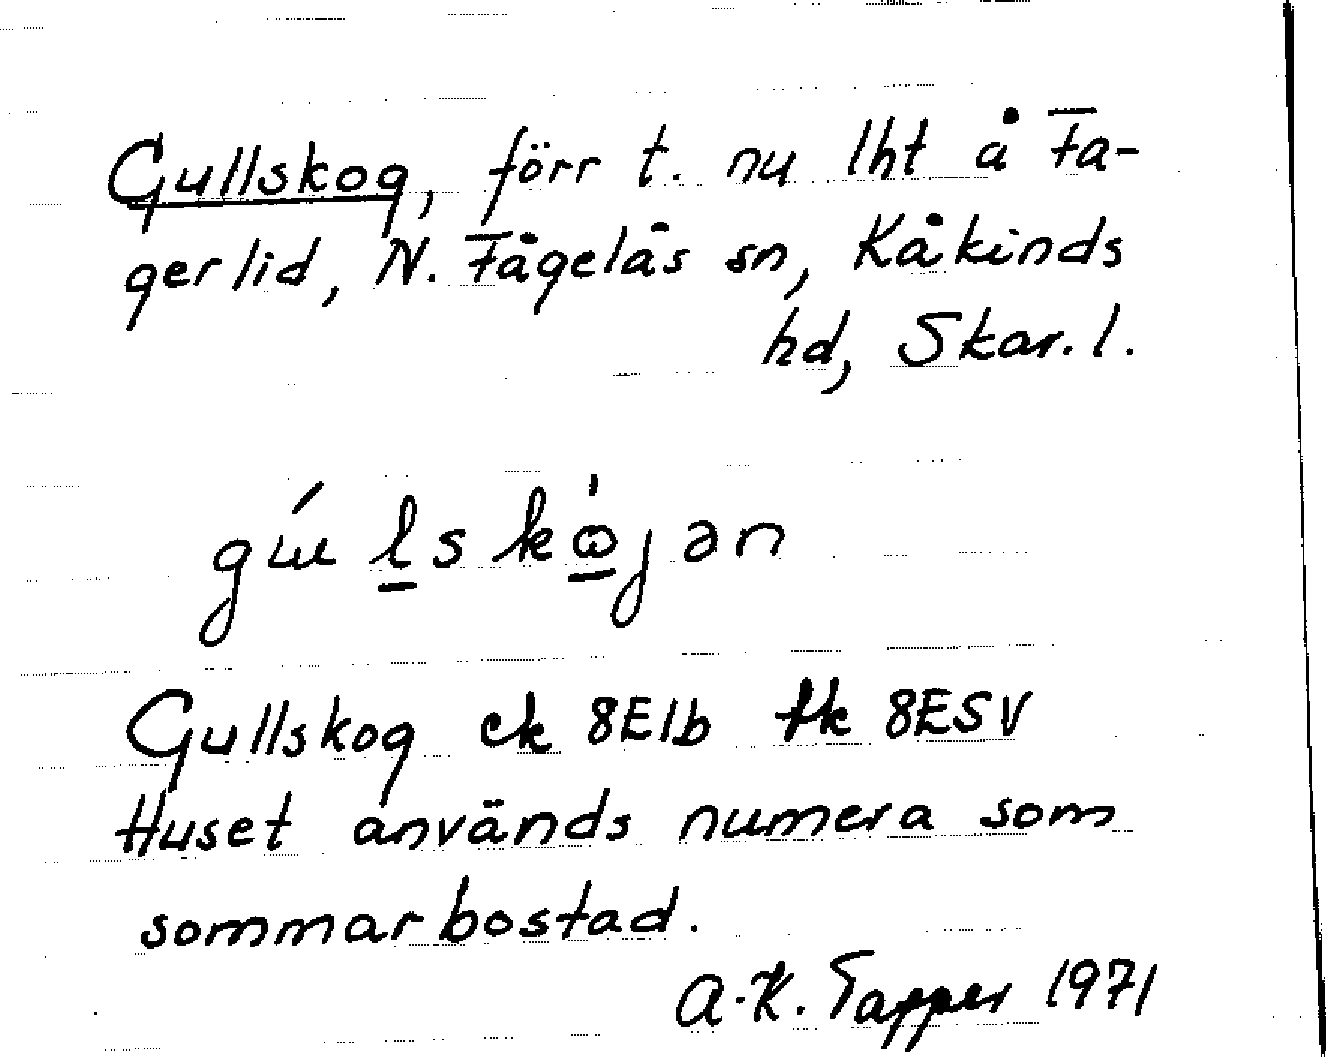 Gullskog, förr t. nu lht å Fa-
gerlid, N. Fågelås sn, Kåkinds
hd, Skar. l.
Gullskog ek 8E1b fk 8E5V
Huset används numera som
sommarbostad.
A-K. Tapper 1971